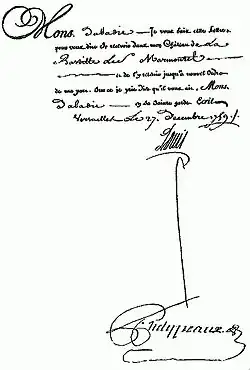 Mons. Dabadie — Je vous fais cette Lettre
pour vous dire de recevoir dans mon Château de La
Bastille Le Sr Marmontel
et de l'y retenir jusqu'à nouvel ordre
de ma part. Sur ce je prie Dieu qu'il vous ait, Mons.
Dabadie — en sa Sainte garde. Ecrit
Versailles Le 27. Decembre 1759.
Louis
Phelypeaux